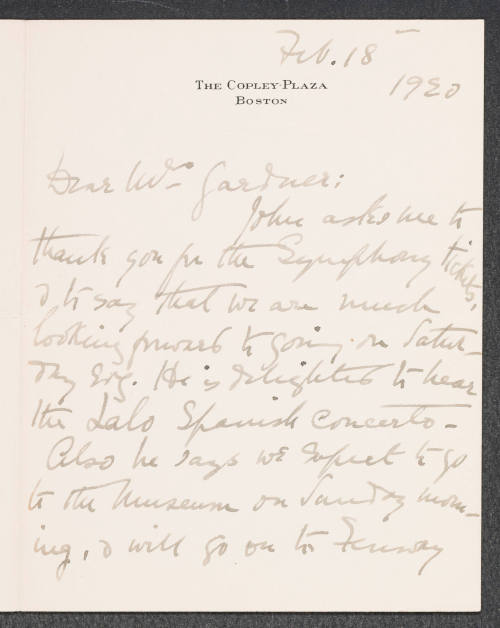 Feb. 18
1920
THE COPLEY-PLAZA
BOSTON
Dear Mrs Gardner:
John asks me to
thank you for the Symphony tickets,
& to say that we are much
looking forward to going on Satur-
day evg. He is delighted to hear
the Lalo Spanish Concerto—
Also he says we expect to go
to the Museum on Sunday morn-
ing, & will go on to Fenway